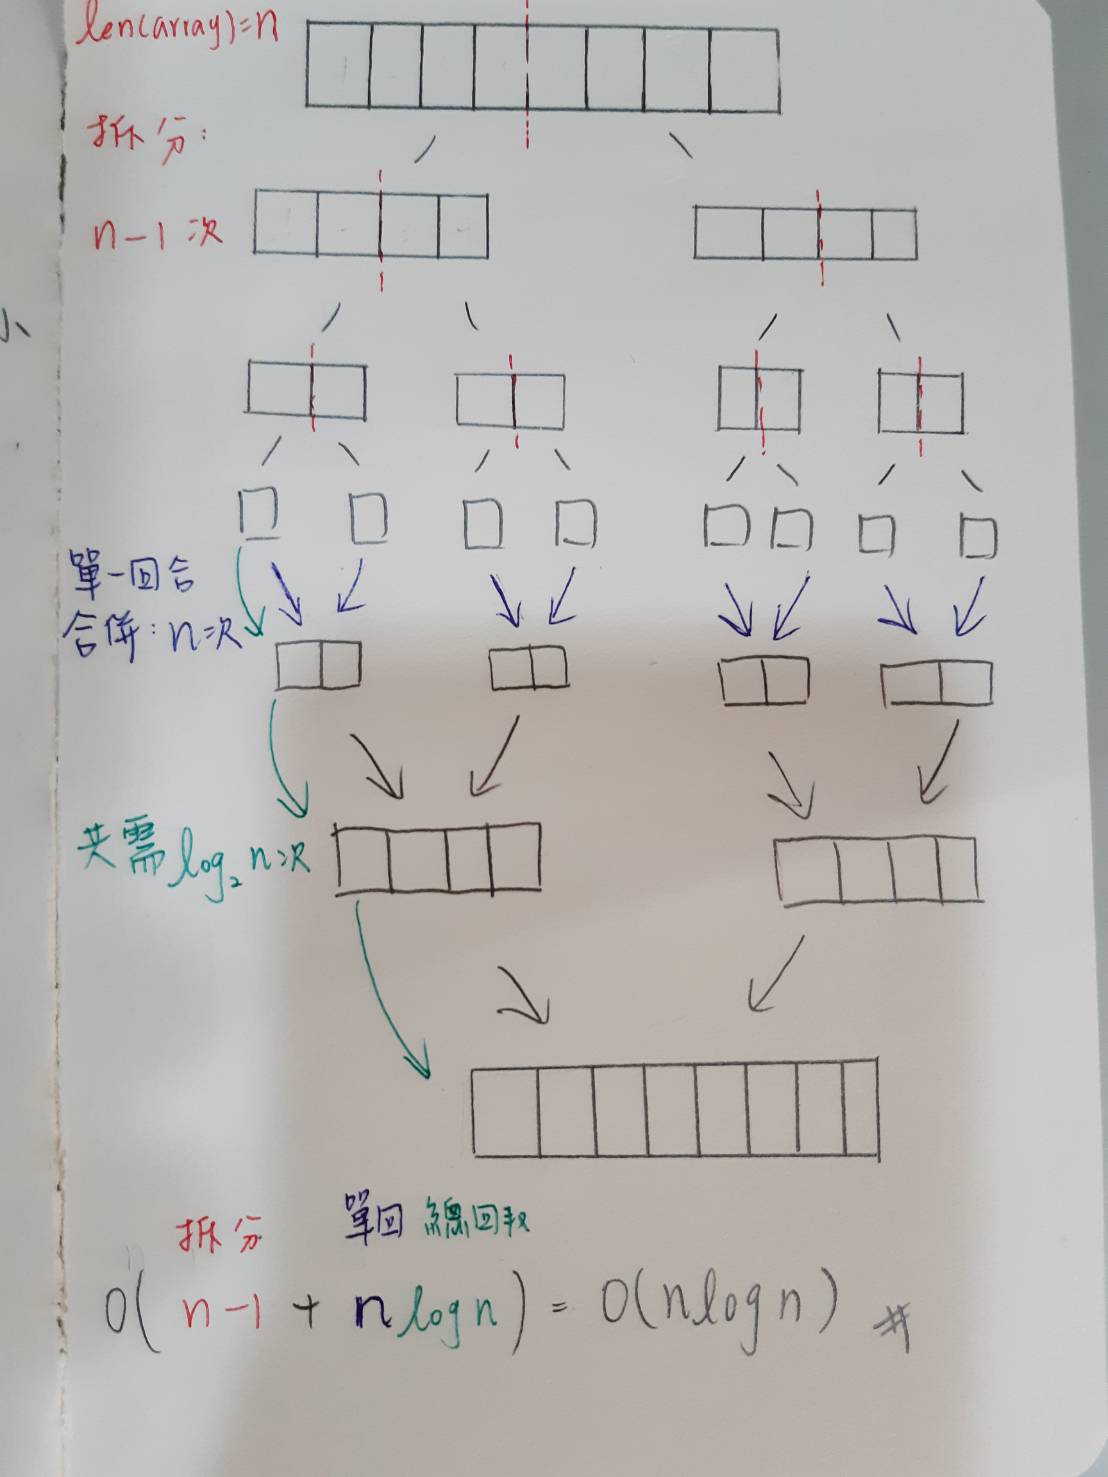 len(array)=n
拆分:
n-1次
小
單一回合
合併:n次
共需log₂n次
拆分 單回 總回數
O(n-1+nlogn)=O(nlogn)#